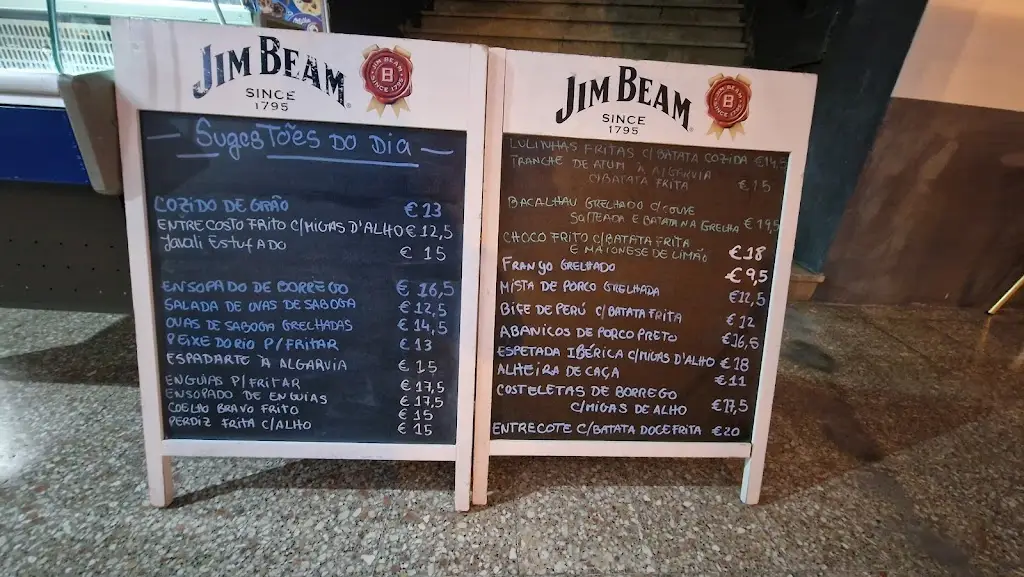 JIM BEAM
SINCE
1795
SugesTões Do Dia
COZIDO DE GRÃO € 13
ENTRECOSTO FRITO C/MIGAS D'ALHO € 12,5
Javali Estufado € 15
ENSOPADO DE BORREGO € 16,5
SALADA DE OVAS DE SABOGA € 12,5
OVAS DE SABOGA GRELHADAS € 14,5
PEIXE DO RIO P/FRITAR € 13
ESPADARTE À ALGARVIA € 15
ENGUIAS P/FRITAR € 17,5
ENSOPADO DE ENGUIAS € 17,5
COELHO BRAVO FRITO € 15
PERDIZ FRITA C/ALHO € 15
JIM BEAM
SINCE
1795
LULINHAS FRITAS C/BATATA COZIDA €14,5
TRANCHE DE ATUM À ALGARVIA
C/BATATA FRITA € 15
BACALHAU GRELHADO C/COUVE
SALTEADA E BATATA NA GRELHA € 19,5
CHOCO FRITO C/BATATA FRITA
E MAIONESE DE LIMÃO €18
FRANGO GRELHADO €9,5
MISTA DE PORCO GRELHADA €12,5
BIFE DE PERÚ C/BATATA FRITA €12
ABANICOS DE PORCO PRETO €16,5
ESPETADA IBÉRICA C/MIGAS D'ALHO €18
ALHEIRA DE CAÇA €11
COSTELETAS DE BORREGO
C/MIGAS DE ALHO €17,5
ENTRECOTE C/BATATA DOCE FRITA €20